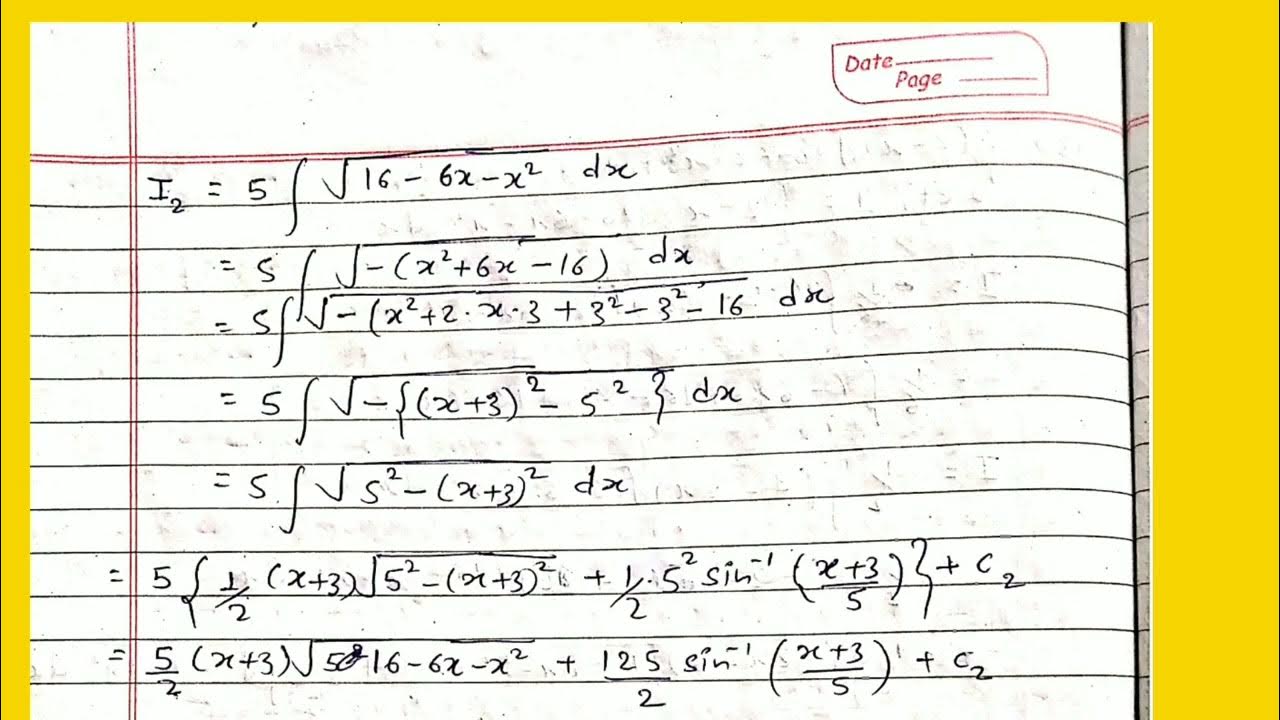 Date
Page
I₂ = 5 ∫ √(16 - 6x - x²) dx
= 5 ∫ √(-(x² + 6x - 16)) dx
= 5 ∫ √(-(x² + 2·x·3 + 3² - 3² - 16) dx
= 5 ∫ √(-{(x+3)² - 5²}) dx
= 5 ∫ √(5² - (x+3)²) dx
= 5 {1/2 (x+3) √(5² - (x+3)²) + 1/2 · 5² sin⁻¹ ((x+3)/5)} + C₂
= 5/2 (x+3) √(16 - 6x - x²) + 125/2 sin⁻¹ ((x+3)/5) + C₂